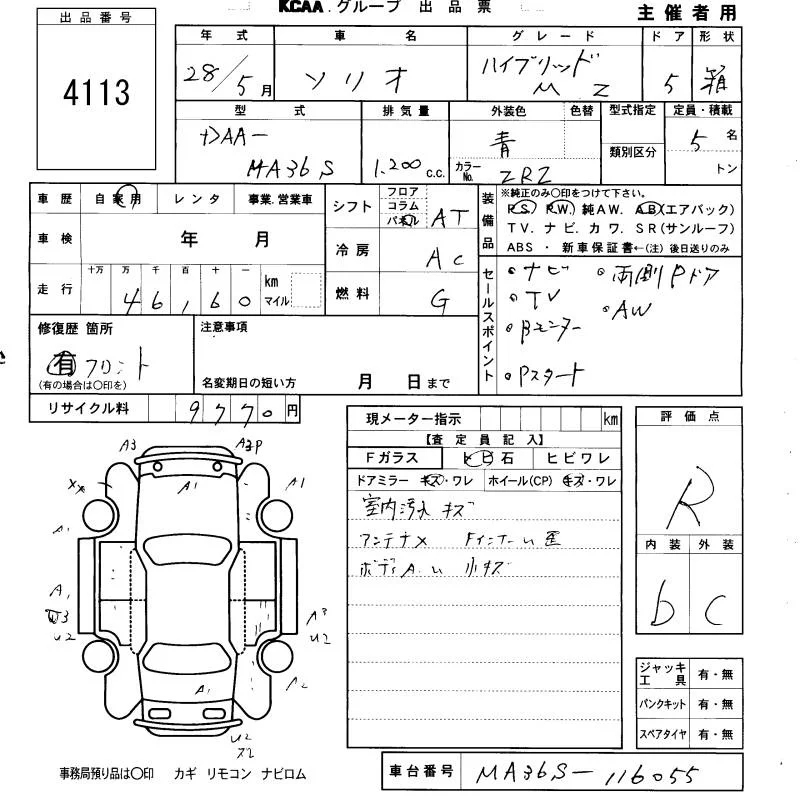 KCAA.グループ 出品票
主催者用
出品番号
4113
年式 車名 グレード ドア 形状
28/5月 ソリオ ハイブリッド MZ 5 箱
型式 排気量 外装色 色替 型式指定 定員・積載
DAA-
MA36S 1,200c.c. 青 カラーNo. ZRZ 類別区分 5名
トン
車歴 自家用 レンタ 事業.営業車
車検 年 月
走行 十万 万 千 百 十 一
46,160 km マイル
シフト フロア コラム パネル AT
冷房 AC
燃料 G
装備品
※純正のみ○印をつけて下さい。
P.S. P.W. 純AW. AB(エアバック)
TV. ナビ. カワ. SR(サンルーフ)
ABS ・ 新車保証書←(注) 後日送りのみ
セールスポイント
・ナビ ・両側Pドア
・TV ・AW
・Bモニター
・Pスタート
修復歴 箇所
有 フロント
(有の場合は○印を)
注意事項
名変期日の短い方 月 日まで
リサイクル料 9770円
現メーター指示 km
【査定員記入】
Fガラス トビ石 ヒビワレ
ドアミラー キズ・ワレ ホイール(CP) キズ・ワレ
室内汚れ キズ
アンテナメ Fインナーム歪
ボディA.U 小キズ
評価点
R
内装 外装
b C
ジャッキ工具 有・無
パンクキット 有・無
スペアタイヤ 有・無
A3 A3P
XX A1 A1
A1
A1
W3 A3
U2 U2
A1 A2
U2
X2
事務局預り品は○印 カギ リモコン ナビロム
車台番号 MA36S-116055